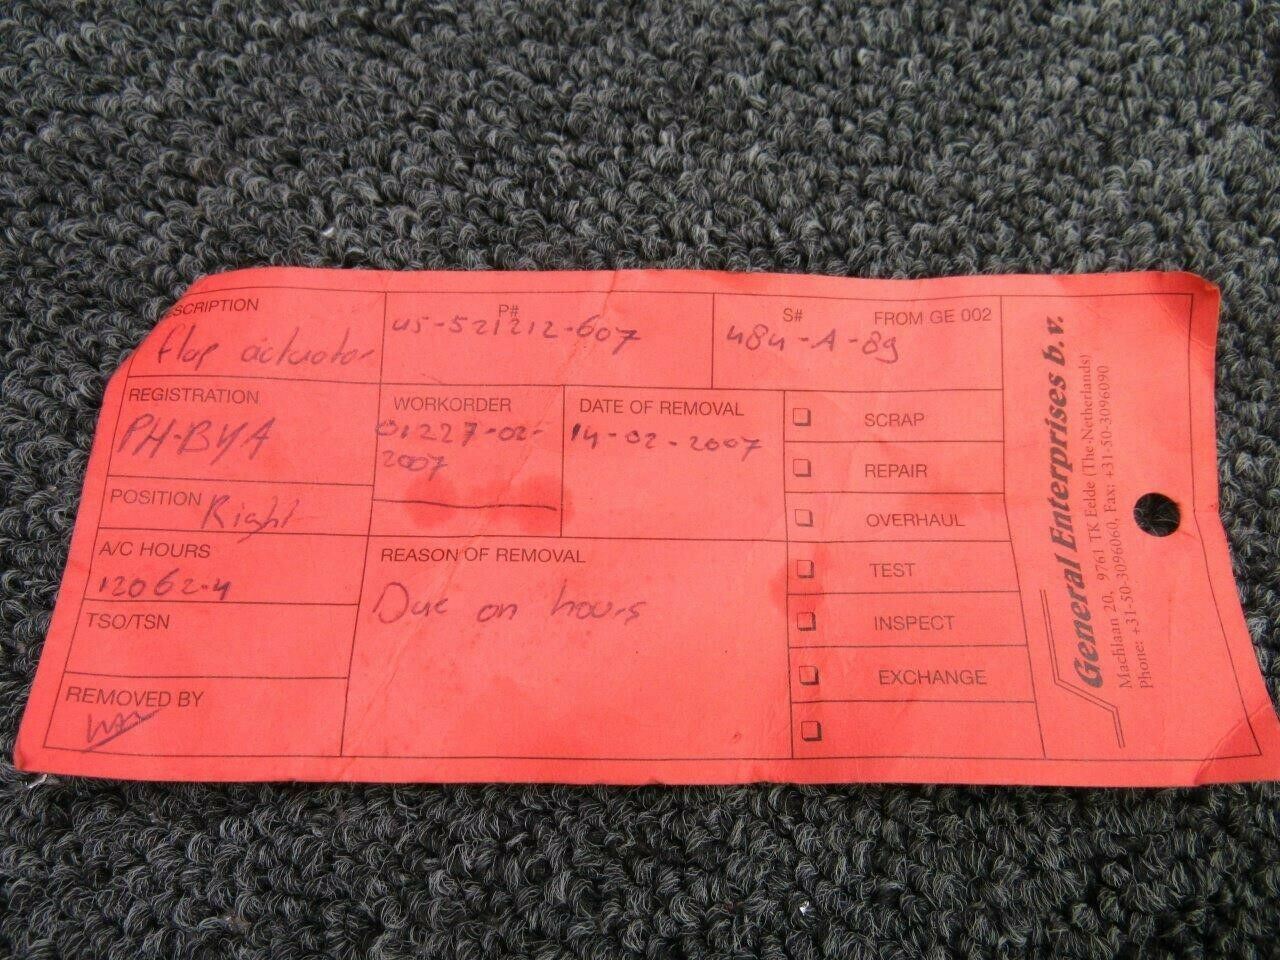 SCRIPTION
flap actuator
P#
45-521212-607
S# FROM GE 002
484-A-89
REGISTRATION
PH-BYA
WORKORDER
01227-02-
2007
DATE OF REMOVAL
14-02-2007
POSITION Right
A/C HOURS
12062.4
TSO/TSN
REMOVED BY
REASON OF REMOVAL
Due on hours
SCRAP
REPAIR
OVERHAUL
TEST
INSPECT
EXCHANGE
General Enterprises b.v.
Machlaan 20, 9761 TK Eelde (The Netherlands)
Phone: +31-50-3096060, Fax: +31-50-3096090